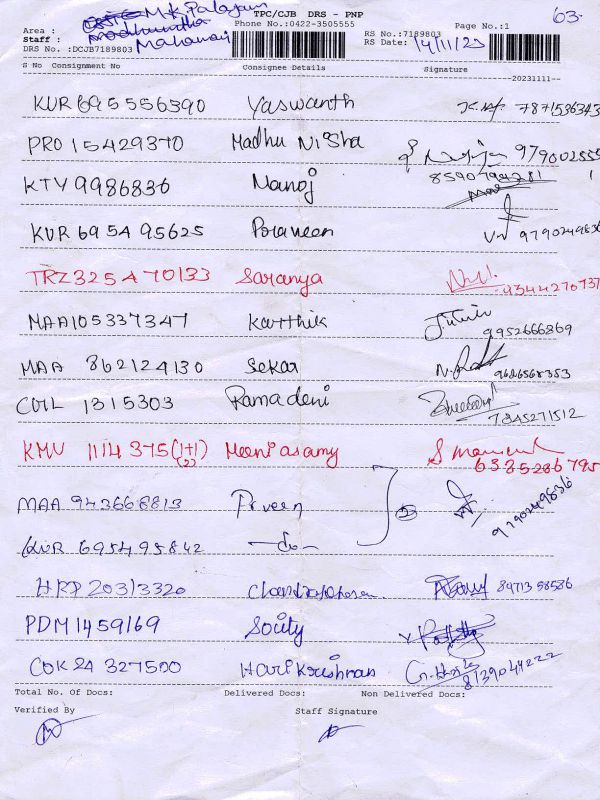 TPC/CJB DRS - PNP
M.K Palayam 63
Area : Phone No.:0422-3505555 Page No.:1
Staff : Madhumitha RS No.:7189803
Mahawari RS Date: 14/11/23
DRS No. :DCJB7189803
S No Consignment No Consignee Details Signature
20231111--
KUR 695556390 Yaswanth 7871536343
PRO 15429370 Madhu Nisha 979002555
KTY 9986836 Manoj 8590794281
KUR 695495625 Praveen 9790249836
TRZ325470133 Saranya 9344270737
MAA105337347 Karthik 9952666869
MAA 862124130 Sekar 9626568353
COIL 1315303 Rama deni 7845271512
KMU 1114375(1+1) Meeniasamy 6385286795
(2)
MAA 943668813 Prveen 9790249836
KUR 695495842 -do- 2
HRP 20313320 Chandrasekaran 8471358586
PDM1459169 Soity
COK24 327500 Hari Krishnan 8139044222
Total No. Of Docs: Delivered Docs: Non Delivered Docs:
Verified By Staff Signature